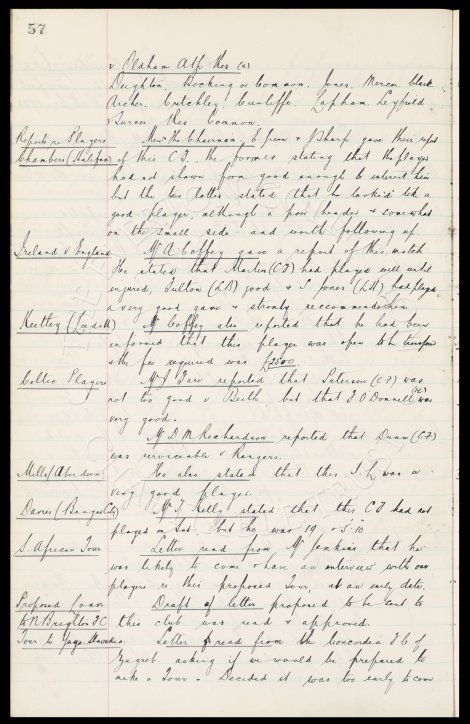 57
v Oldham Ath Res (a)
Deighton. Bocking or Common. Jones. Mercer. Clark
Archer. Critchley. Cunliffe. Lapham. Leyfield
Res Common.
Reports re Players
Mess the Chairman, E Green & J Sharp gave their report
Chambers (Halifax) of this CF. the former stating that the player
had not shown form good enough to interest him
but the two latter stated that he looked like a
good player, although a poor header & somewhat
on the small side and worth following up.
Ireland v England Mr A Coffey gave a report of this match
He stated that Martin (CF) had played well until
injured, Fulton (LB) good & S Jones (LH) had played
a very good game & strongly reccommended him
Keetley (Leeds U) Mr Coffey also reported that he had been
informed that this player was open to be transfered
& the fee required was £2500
Celtic Players Mr J Fare reported that Paterson (CF) was
not too good v Beith but that F O'Donnell was
very good.
Mr D M Reichardson reported that Dunn (CF)
was serviceable v Rangers.
Mills (Aberdeen) He also stated that this I.L. was a
very good player.
Davies (Bangor City) Mr T Kelly stated that this CF had not
played on Sat. but he was 19 & 5'10
S. African Tour Letter read from Mr Jenkins that he
was likely to come & have an interview with our
player re this proposed Tour, at an early date.
Proposed Loan Draft of letter proposed to be sent to
to N Brighton FC this club was read & approved.
Tour to Yugo-Slavakia. Letter read from the Concordia F.C. of
Zagreb asking if we would be prepared to
make a Tour - Decided it was too early to come